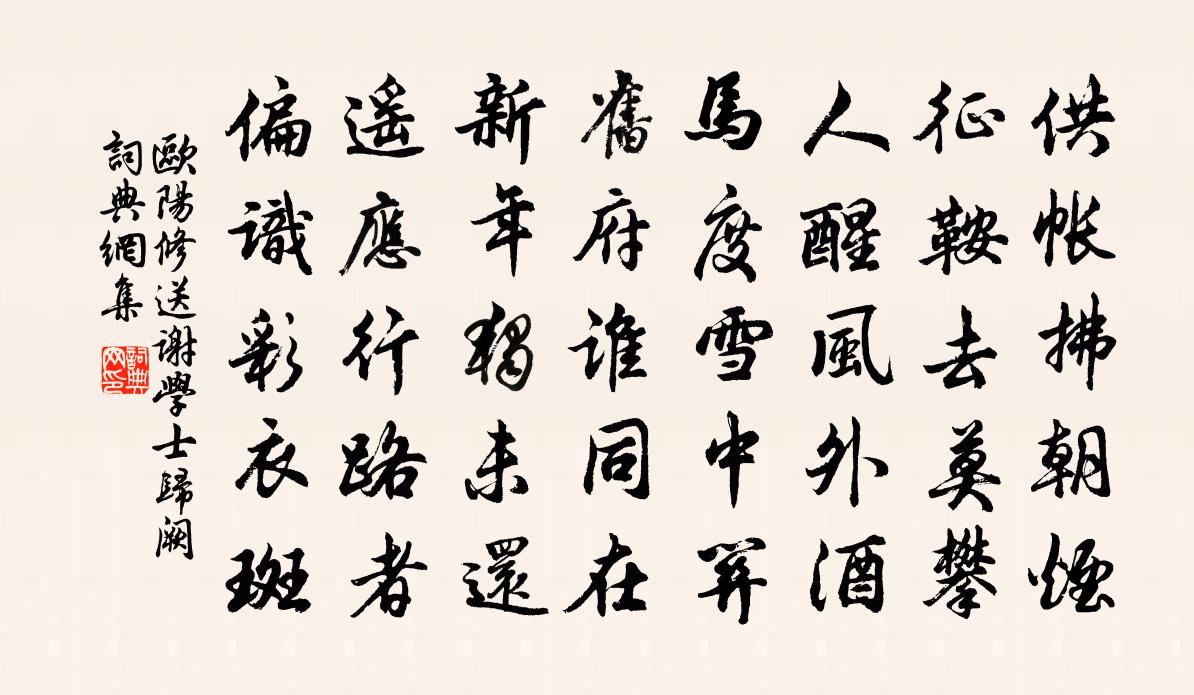 供帐拂朝煙
征鞍去莫攀
人醒風外酒
馬度雪中關
舊府誰同在
新年獨未還
遥應行路者
偏識彩衣斑
歐陽修送謝學士歸闕
詞典網集
詞典
网印